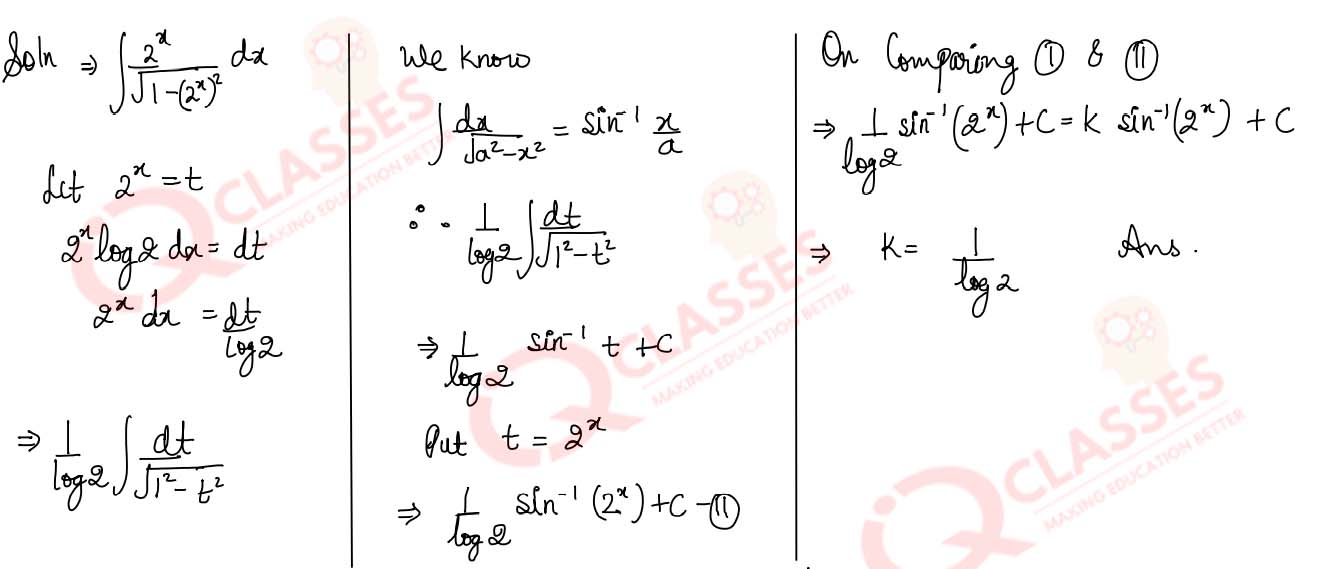 Soln ⇒ ∫ 2^x / √(1-(2^x)^2) dx
Let 2^x = t
2^x log2 dx = dt
2^x dx = dt/log2
⇒ 1/log2 ∫ dt/√(1^2 - t^2)
We know
∫ dx/√(a^2-x^2) = sin^-1 x/a
∴ 1/log2 ∫ dt/√(1^2-t^2)
⇒ 1/log2 sin^-1 t + C
Put t = 2^x
⇒ 1/log2 sin^-1 (2^x) + C -(II)
On Comparing (I) & (II)
⇒ 1/log2 sin^-1(2^x) + C = k sin^-1(2^x) + C
⇒ K = 1/log2 Ans.
IQ CLASSES
MAKING EDUCATION BETTER
IQ CLASSES
MAKING EDUCATION BETTER
IQ CLASSES
MAKING EDUCATION BETTER